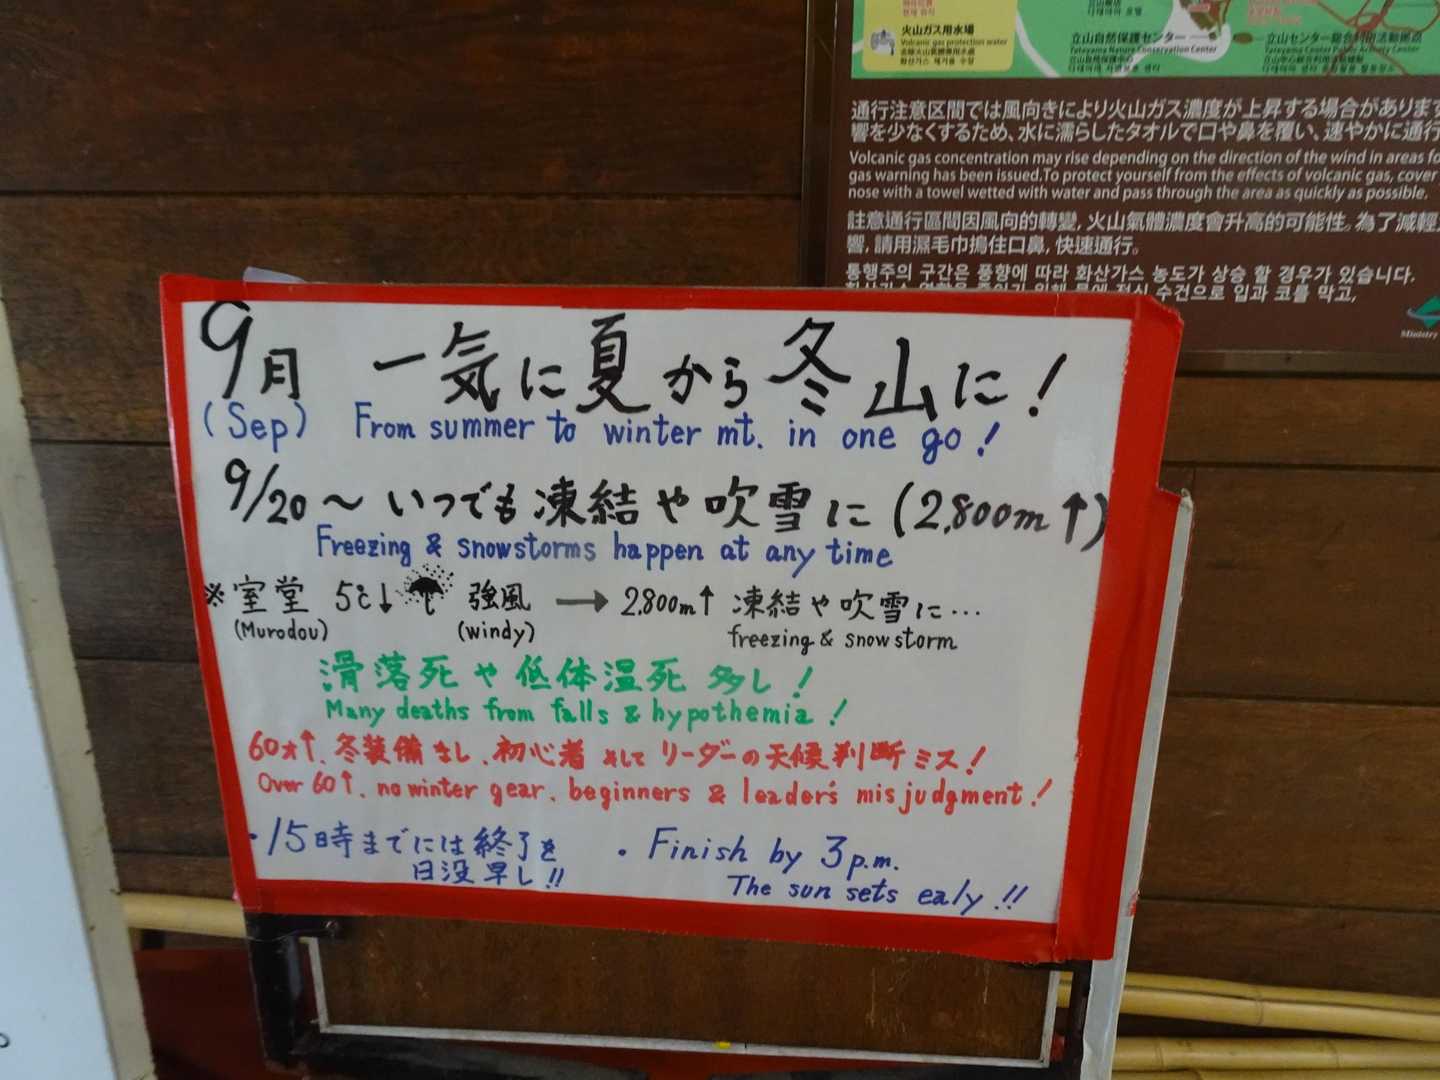 火山ガス用水場
Volcanic gas protection water
立山自然保護センター
Tateyama Nature Conservation Center
立山センター総合利用活動拠点
Tateyama Center Public Activity Center
通行注意区間では風向きにより火山ガス濃度が上昇する場合があります
響を少なくするため、水に濡らしたタオルで口や鼻を覆い、速やかに通行
Volcanic gas concentration may rise depending on the direction of the wind in areas fo
gas warning has been issued.To protect yourself from the effects of volcanic gas, cover
nose with a towel wetted with water and pass through the area as quickly as possible.
註意通行區間因風向的轉變，火山氣體濃度會升高的可能性。為了減輕
響，請用濕毛巾摀住口鼻，快速通行。
통행주의 구간은 풍향에 따라 화산가스 농도가 상승 할 경우가 있습니다.
수건으로 입과 코를 막고,
Ministry
9月 一気に夏から冬山に！
(Sep) From summer to winter mt. in one go!
9/20～いつでも凍結や吹雪に(2,800m↑)
Freezing & snowstorms happen at any time
※室堂 5℃↓ 強風 → 2,800m↑ 凍結や吹雪に…
(Murodou) (windy) freezing & snowstorm
滑落死や低体温死 多し！
Many deaths from falls & hypothemia!
60才↑、冬装備なし、初心者 そして リーダーの天候判断ミス！
Over 60↑. no winter gear. beginners & leader's misjudgment!
・15時までには終了を
日没早し!!
・Finish by 3p.m.
The sun sets ealy!!